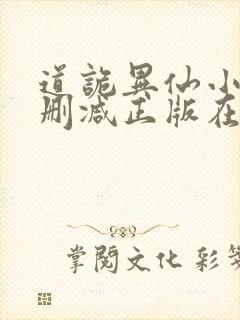 道詭異仙小
刪減正版在
掌閱文化 彩筆